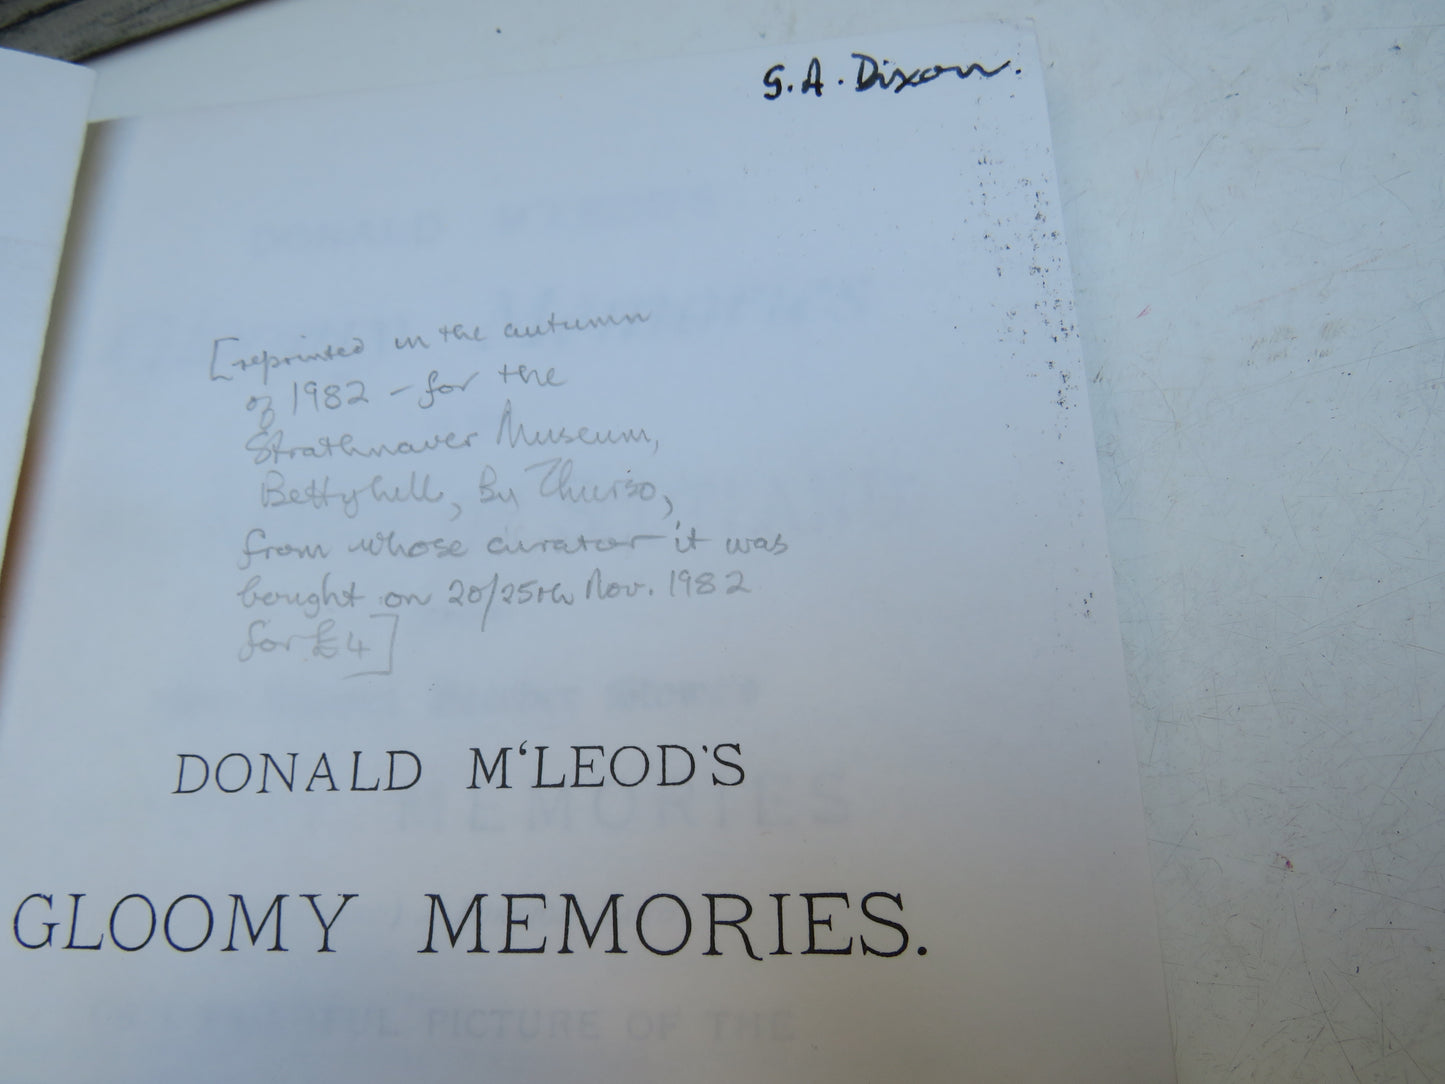 G. A. Dixon.
[reprinted in the autumn
of 1982 – for the
Strathnaver Museum,
Bettyhill, By Thurso,
from whose curator it was
bought on 20/25th Nov. 1982
for £4]
DONALD M‘LEOD'S
GLOOMY MEMORIES.